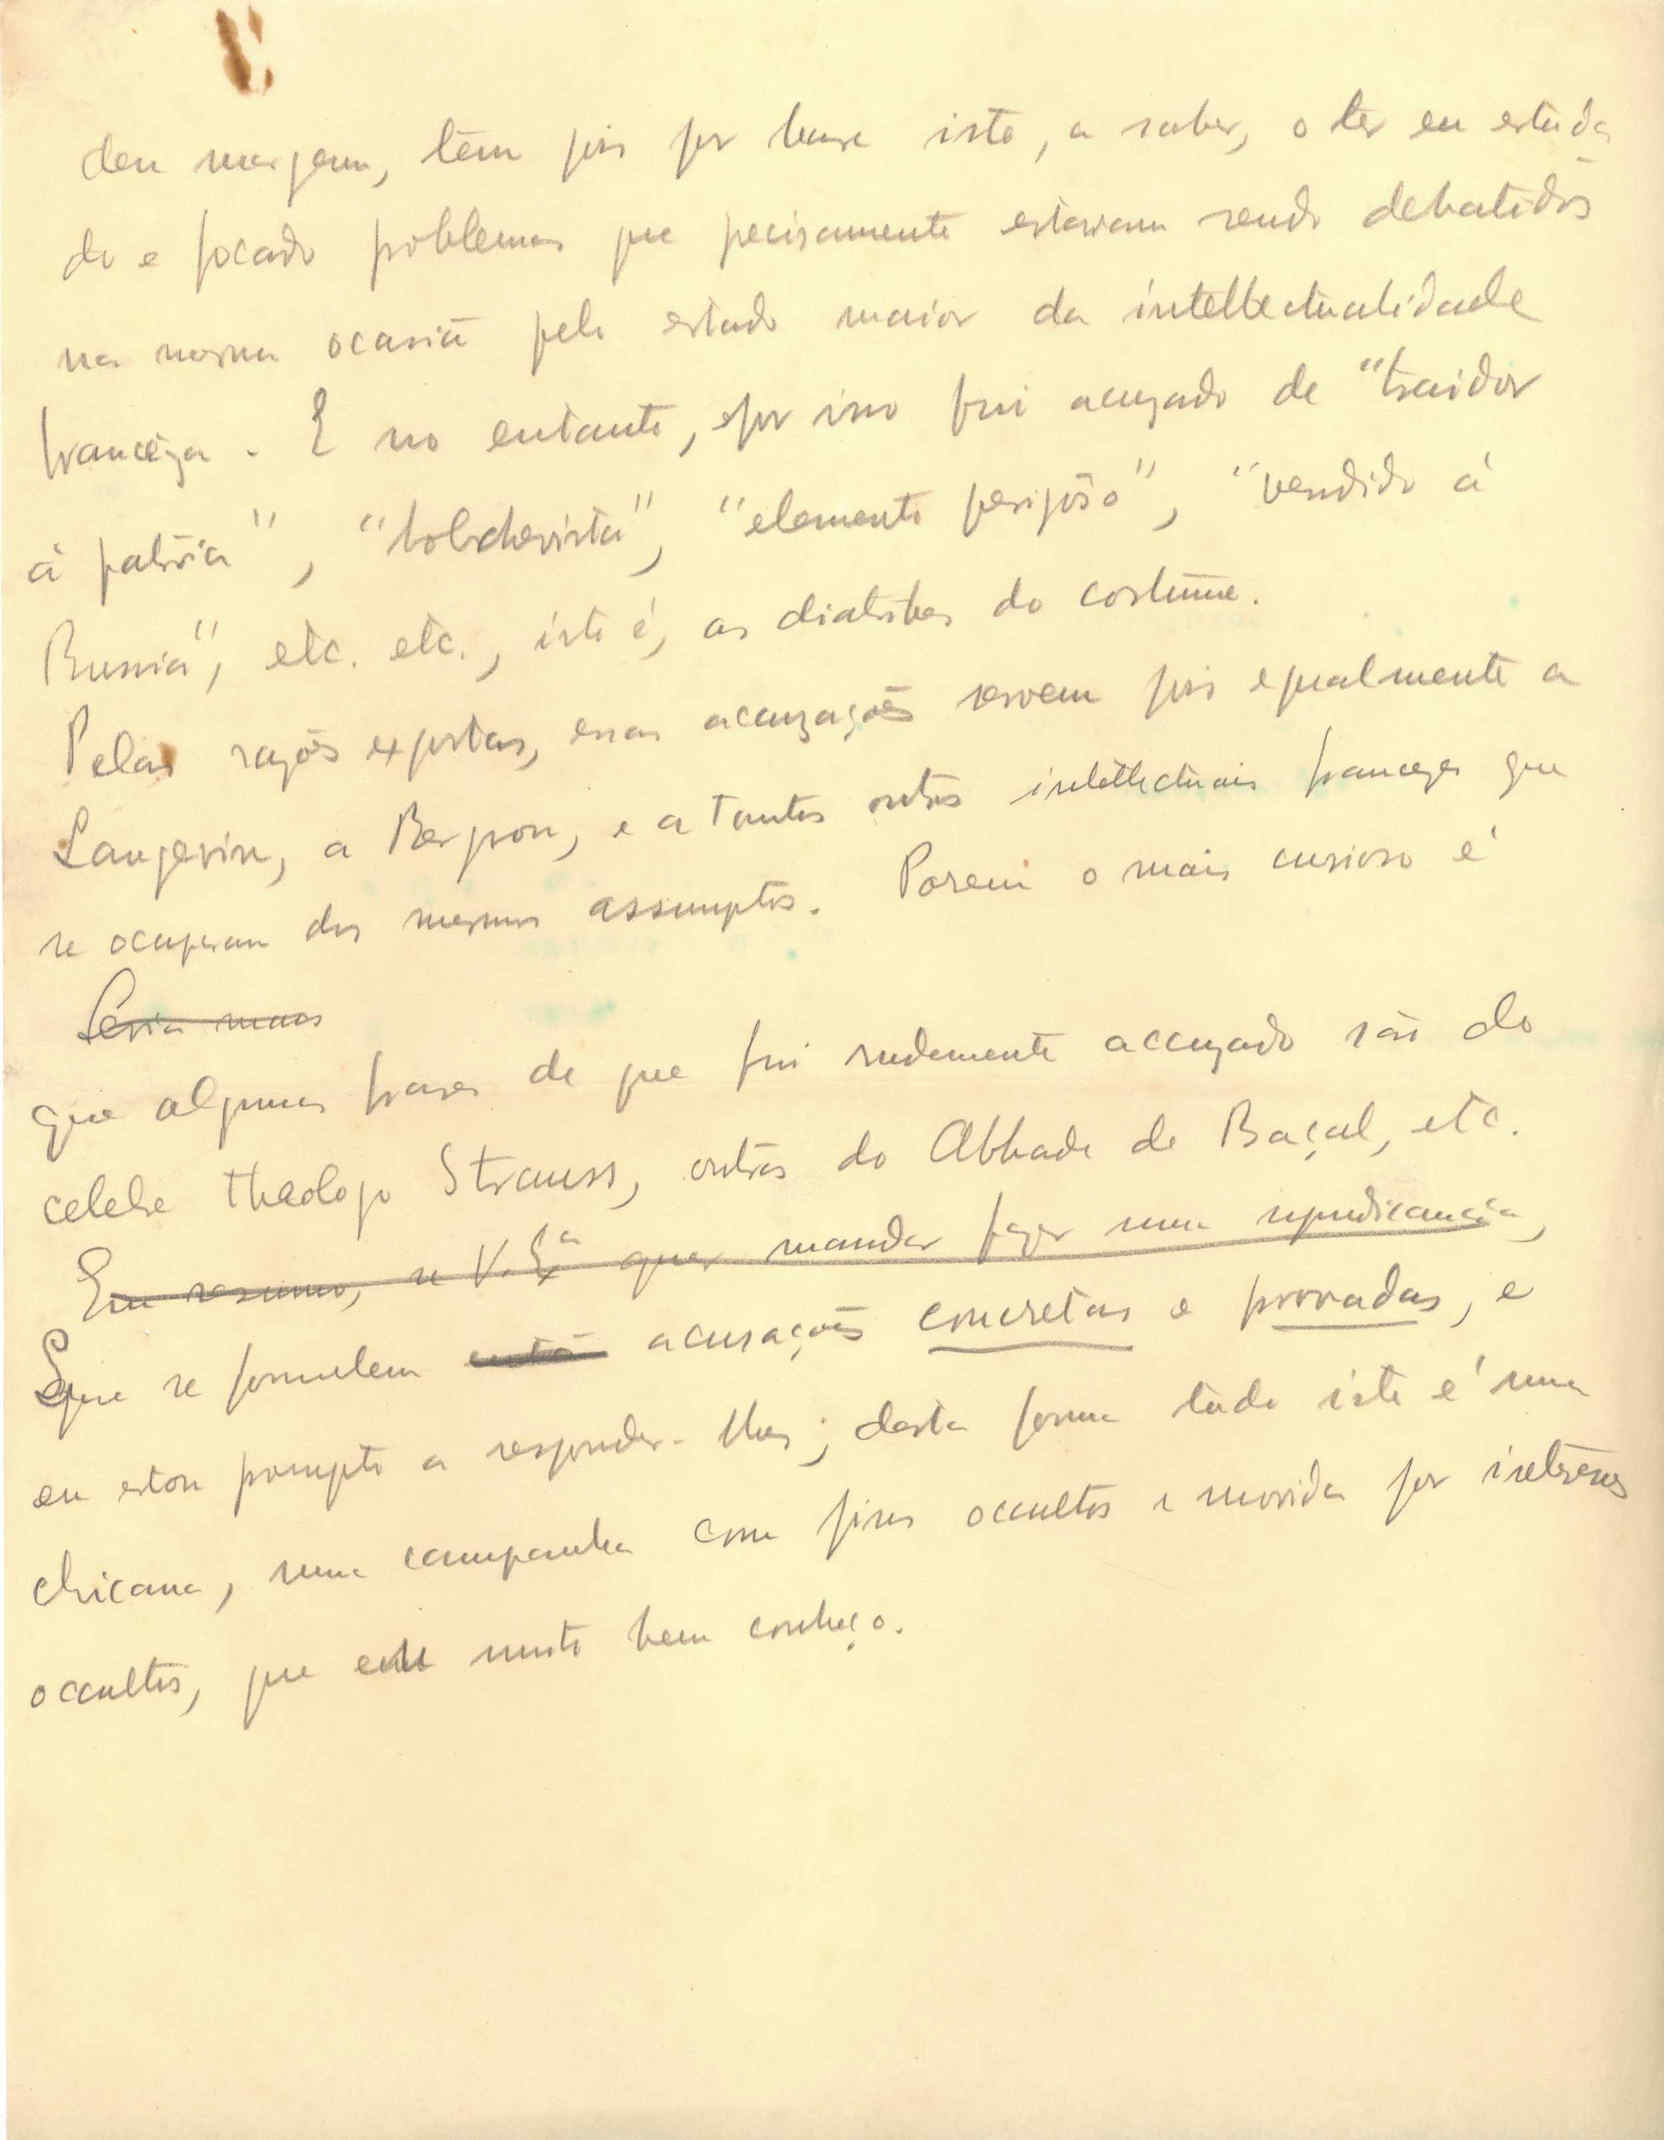 deu margem, têm pois por base isto, a saber, o ter eu estuda
do e focado problemas que precisamente estavam sendo debatidos
na mesma ocasiã pelo estado maior da intellectualidade
francêza. E no entanto, e por isso fui acuzado de "traidor
á patria", "bolchevista", "elemento perigôso", "vendido á
Russia", etc. etc., isto é, as diatribes do costume.
Pelas razões expostas, essas acuzações servem pois egualmente a
Langevin, a Bergson, e a tantos outros intellectuais francezes que
se ocuparam dos mesmos assumptos. Porem o mais curioso é
Seria mais
que algumas frases de que fui rudemente accuzado são do
celebre theologo Strauss, outras do Abbade de Baçal, etc.
Em resumo, se V. Exª quer mandar fazer uma syndicancia,
Que se formulem então acusações concretas e provadas, e
eu estou prompto a responder-lhes; desta forma tudo isto é uma
chicana, uma campanha com fins occultos e movida por interêsses
occultos, que eu muito bem conheço.